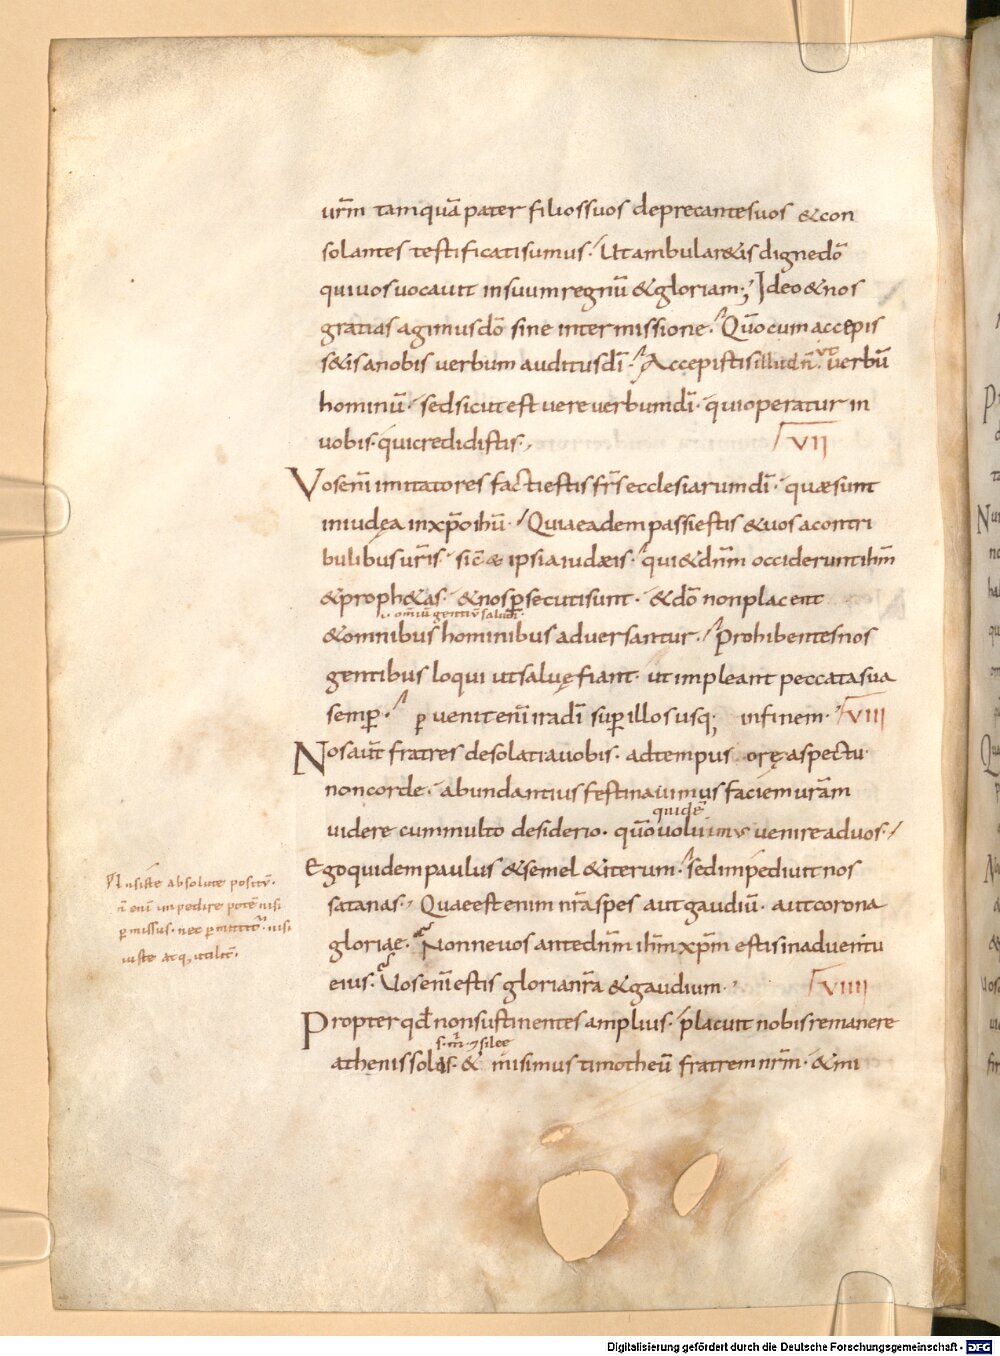 urm̄ tamquā pater filios suos deprecantes uos & con
solantes testificati sumus. Ut ambular&is digne dō
qui uos uocauit in suum regnū & gloriam; Ideo & nos
gratias agimus dō sine intermissione. Quō cum accepis
s&is a nobis uerbum auditus dī. Accepistis illud n̄ ut uerbū
hominū. sed sicut est uere uerbum dī. qui operatur in
uobis. qui credidistis. VII
Vos enī imitatores facti estis frs̄ ecclesiarum dī. quæ sunt
in iudęa in xp̄o ihū. Quia eadem passi estis & uos a contri
bulibus urīs. sic̄ & ipsi a iudæis. qui & dnm̄ occiderunt ihm̄
& proph&as. & nos p̄secuti sunt. & dō non placent
omīu gentiū saluti
& omnibus hominibus aduersantur. Prohibentes nos
gentibus loqui ut saluę fiant. ut impleant peccata sua
semp̄. p̄uenit enī ira dī sup̄ illos usq; in finem. VIII
Nos aut̄ fratres desolati a uobis. ad tempus oręaspectu
non corde. abundantius festinauimus faciem uram̄
quidē
uidere cum multo desiderio. quō uoluimus uenire ad uos.
Ego quidem paulus & semel & iterum. sed impediuit nos
satanas. Quae est enim nrā spes aut gaudiū. aut corona
gloriae. Nonne uos ante dnm̄ ihm̄ xpm̄ estis in aduentu
eius. Uos enī estis gloria nrā & gaudium. VIIII
Propter qd̄ non sustinentes amplius. placuit nobis remanere
athenis solis. & misimus timotheū fratrem nrm̄. & mi
iuste absolute positū.
n̄ enī impedire potē nisi
p̄missus. nec p̄mittit̄ nisi
iuste atq; utilit̄.
Digitalisierung gefördert durch die Deutsche Forschungsgemeinschaft - DFG